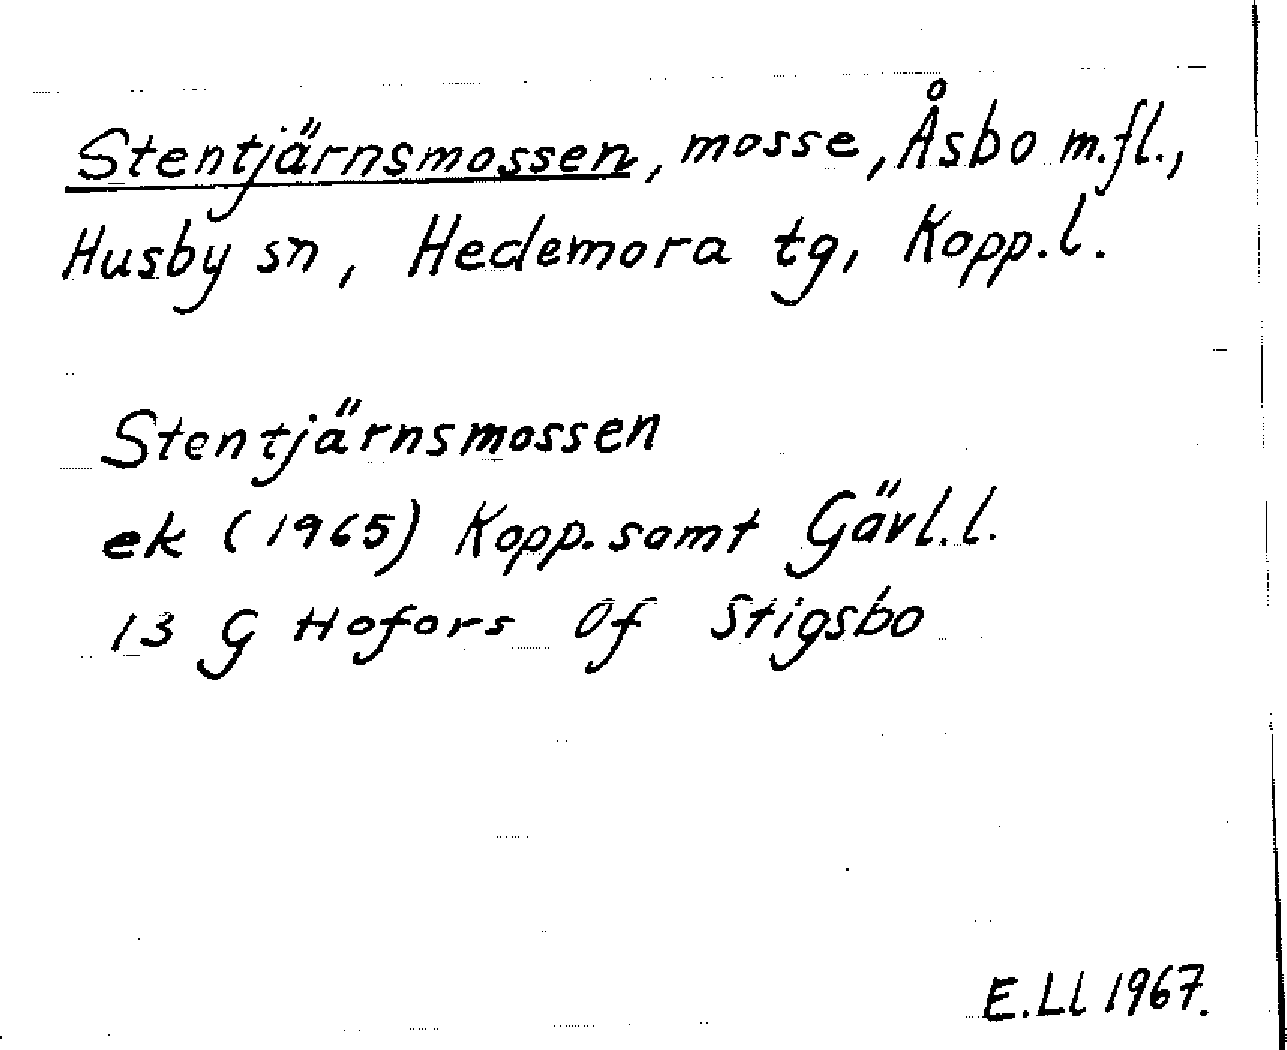 Stentjärnsmossen, mosse, Åsbo m.fl.,
Husby sn, Hedemora tg, Kopp.l.
Stentjärnsmossen
ek (1965) Kopp. samt Gävl.l.
13 G Hofors 0f Stigsbo
E.Ll 1967.